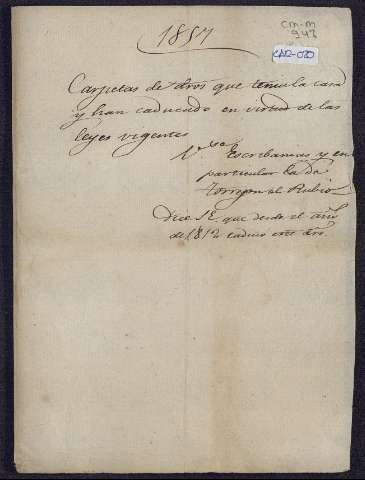 1857
CM-M
943
CA12-030
Carpetas de dros que tenia la casa
y han caducado en virtud de las
leyes vigentes
Escribanias y en
particular la de
Torrejon el Rubio
Dice S.E. que desde el año
de 1812 caducó este dro.